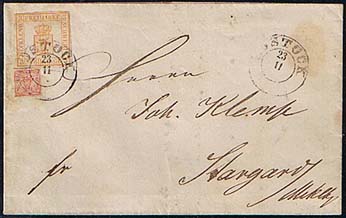 STOCK
23
11
STOCK
23
11
Herrn
Joh. Klemp
fr
Stargard